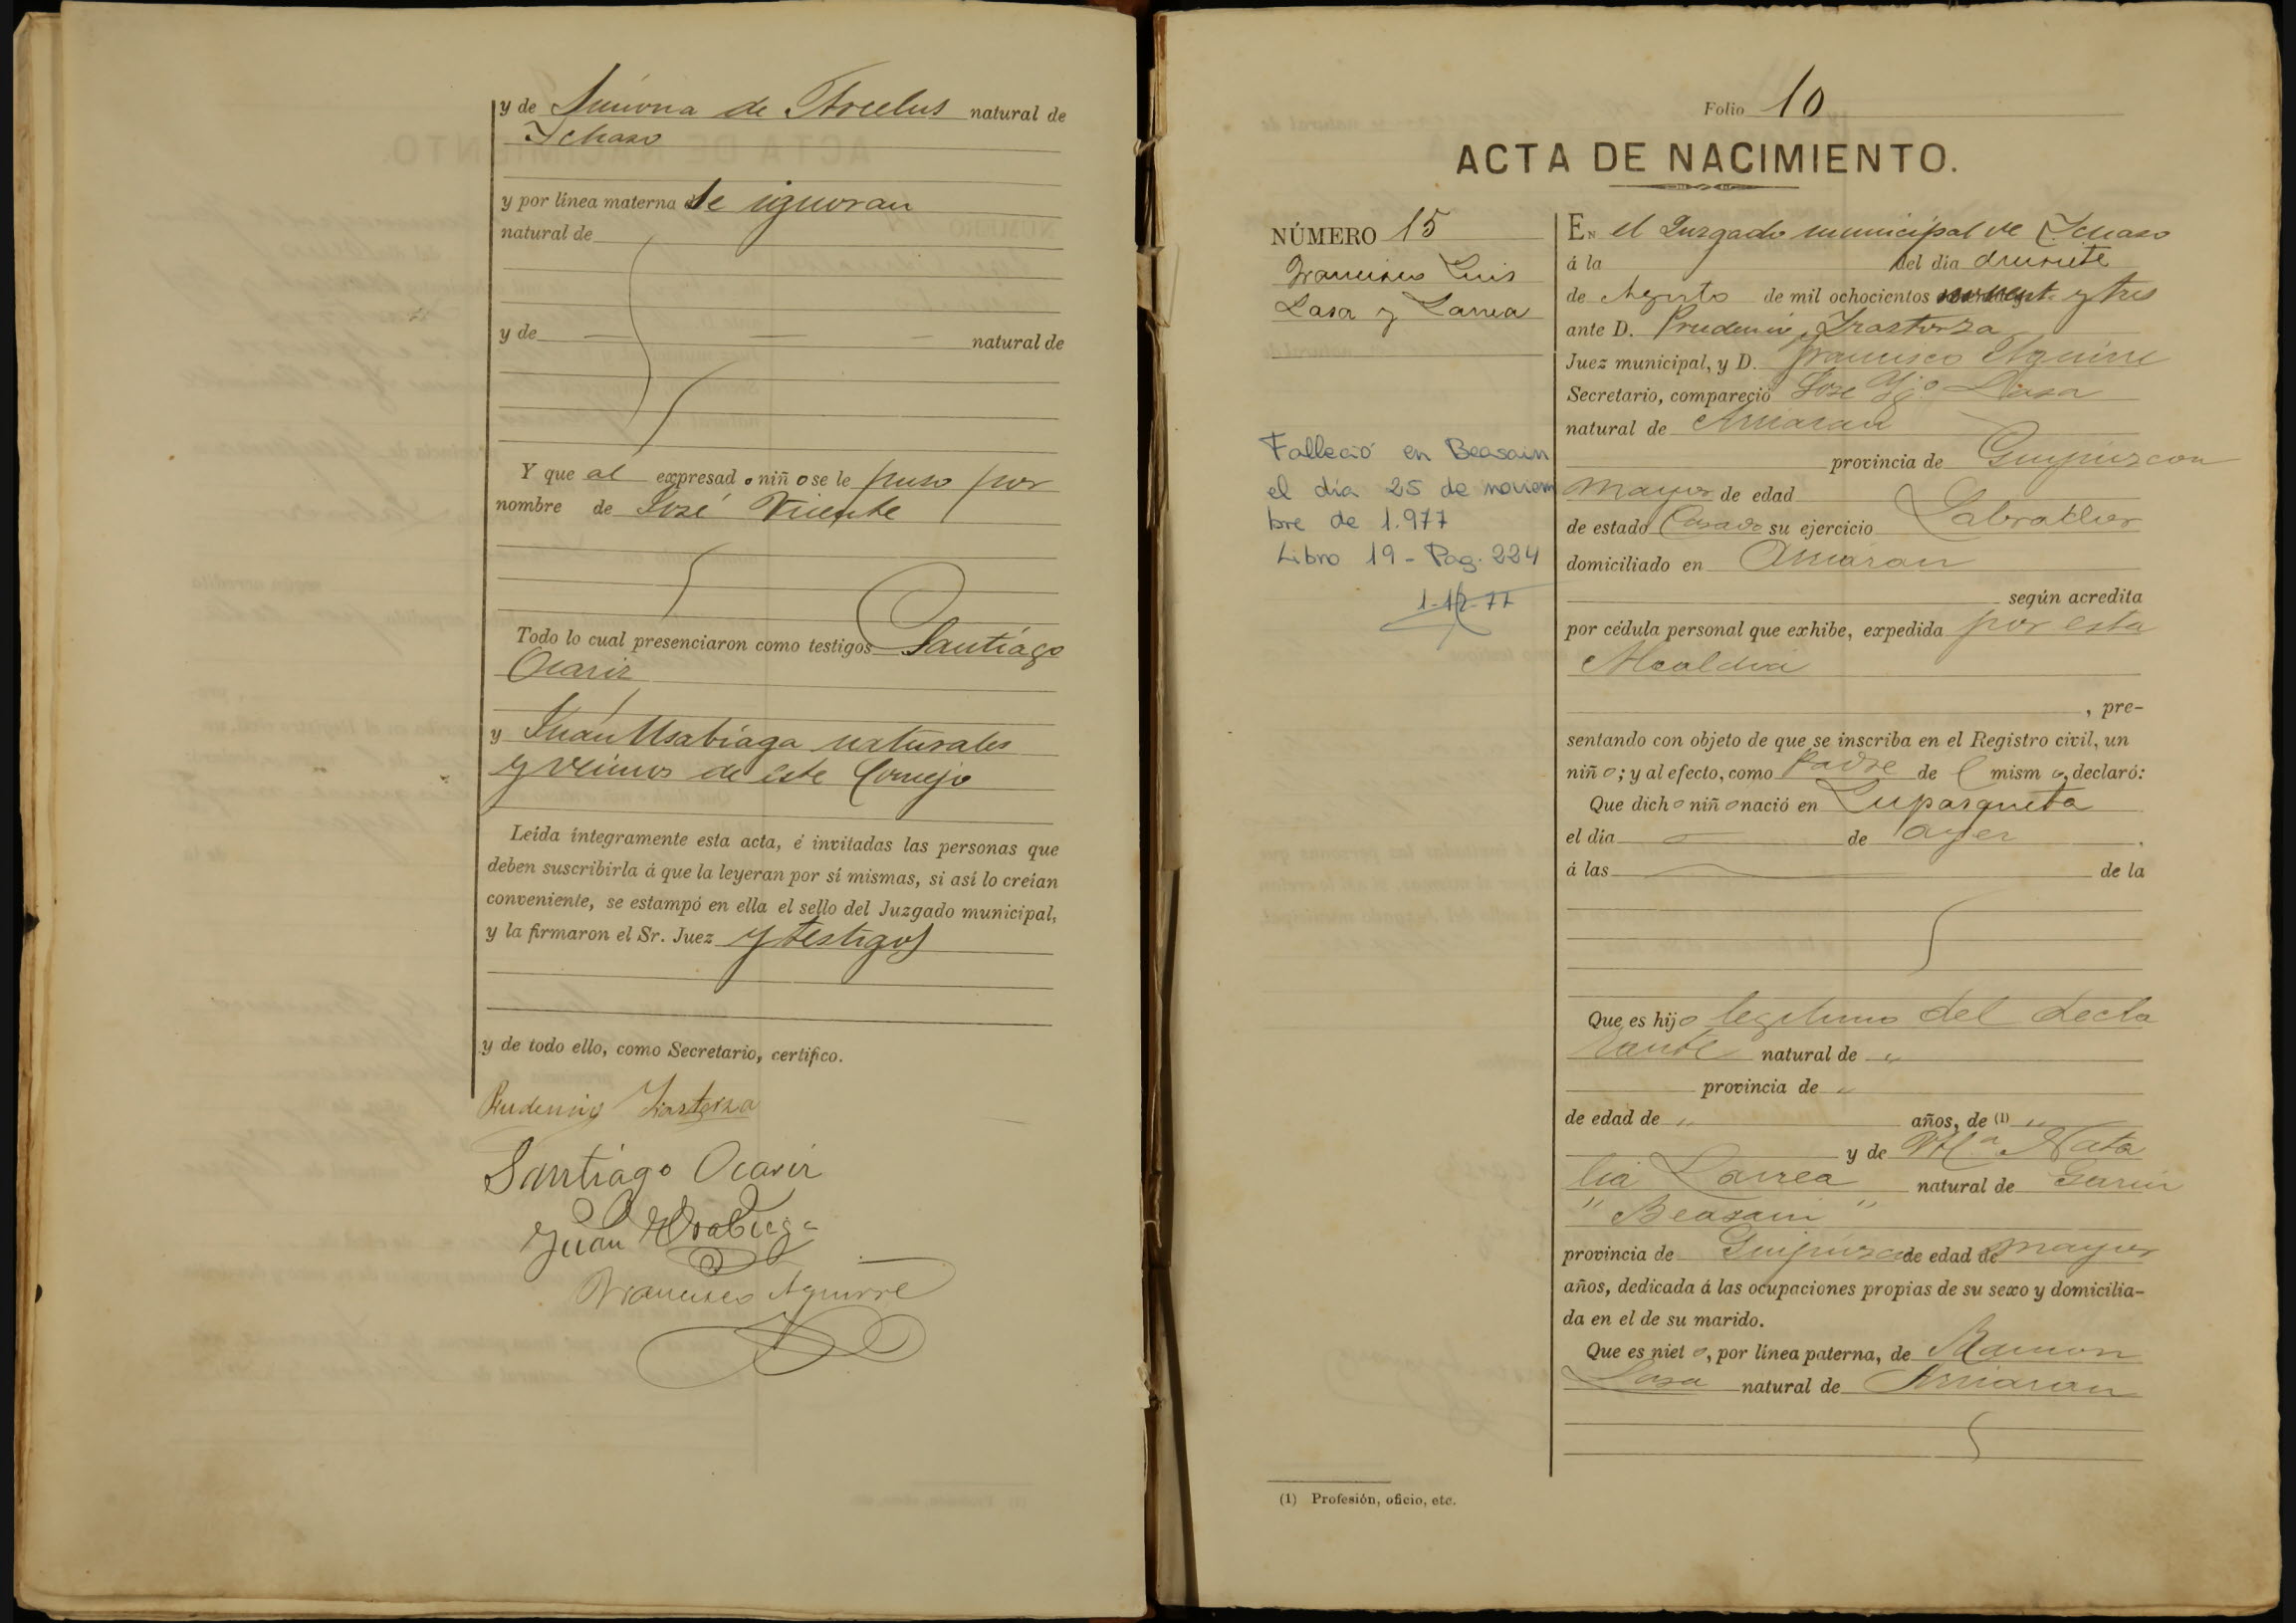 y de Simona de Arcelus natural de
Ichaso
y por linea materna de se ignoran
natural de
y de natural de
Y que al expresado niño se le puso por
nombre de José Vicente
Todo lo cual presenciaron como testigos Santiago
Ocariz
y Juan Usabiaga naturales
y vecinos de este Concejo
Leída íntegramente esta acta, é invitadas las personas que
deben suscribirla á que la leyeran por sí mismas, si así lo creían
conveniente, se estampó en ella el sello del Juzgado municipal,
y la firmaron el Sr. Juez y testigos
y de todo ello, como Secretario, certifico.
Prudencio Irastorza
Santiago Ocariz
Juan Usabiaga
Francisco Aguirre
Folio 10
ACTA DE NACIMIENTO.
NÚMERO 15
Francisco Luis
Lasa y Larrea
Falleció en Beasain
el día 25 de noviem
bre de 1.977
Libro 19 - Pag. 224
1-12-77
En el Juzgado municipal de Ichaso
á la del dia diecisiete
de Agosto de mil ochocientos noventa y tres
ante D. Prudencio Irastorza
Juez municipal, y D. Francisco Aguirre
Secretario, compareció José Lasa
natural de Arriaran
provincia de Guipúzcoa
mayor de edad
de estado Casado su ejercicio Labrador
domiciliado en Arriaran
según acredita
por cédula personal que exhibe, expedida por esta
Alcaldia
, pre-
sentando con objeto de que se inscriba en el Registro civil, un
niño; y al efecto, como Padre del mismo, declaró:
Que dicho niño nació en Luparqueta
el dia de ayer
á las de la
Que es hijo legitimo del decla
rante natural de "
provincia de "
de edad de " años, de (1) "
y de Mª Nata
lia Larrea natural de Garin
" Beasain "
provincia de Guipúzcoa de edad de mayor
años, dedicada á las ocupaciones propias de su sexo y domicilia-
da en el de su marido.
Que es nieto, por línea paterna, de Ramon
Lasa natural de Arriaran
(1) Profesión, oficio, etc.